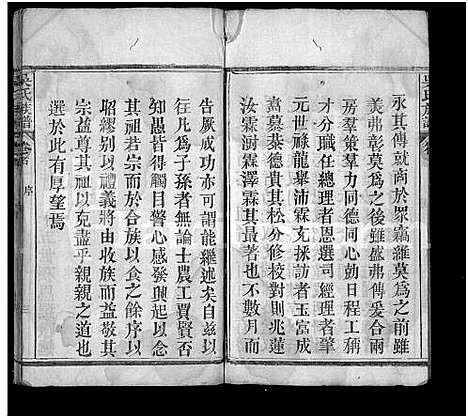 永其傳就商於眾竊維莫為之前雖
美弗彰莫為之後雖盛弗傳爰合兩
房羣策羣力同德同心勅日程工稱
才分職任總理者恩選司經理者肇
元世祿龍舉沛霖充採訪者玉富成
嵩慕蔡德貴其松分修校對則兆蓮
汝霖洞霖澤霖其最著也不數月而
告厥成功亦可謂能繼述矣自玆以
往凡為子孫者無論士農工賈賢否
知愚皆得觸目警心感發興起以念
其祖若宗而於合族以食之餘序以
昭穆別以禮義將由收族而益敬其
宗益尊其祖以克盡乎親親之道也
選於此有厚望焉
吳氏族譜
卷首
序
三